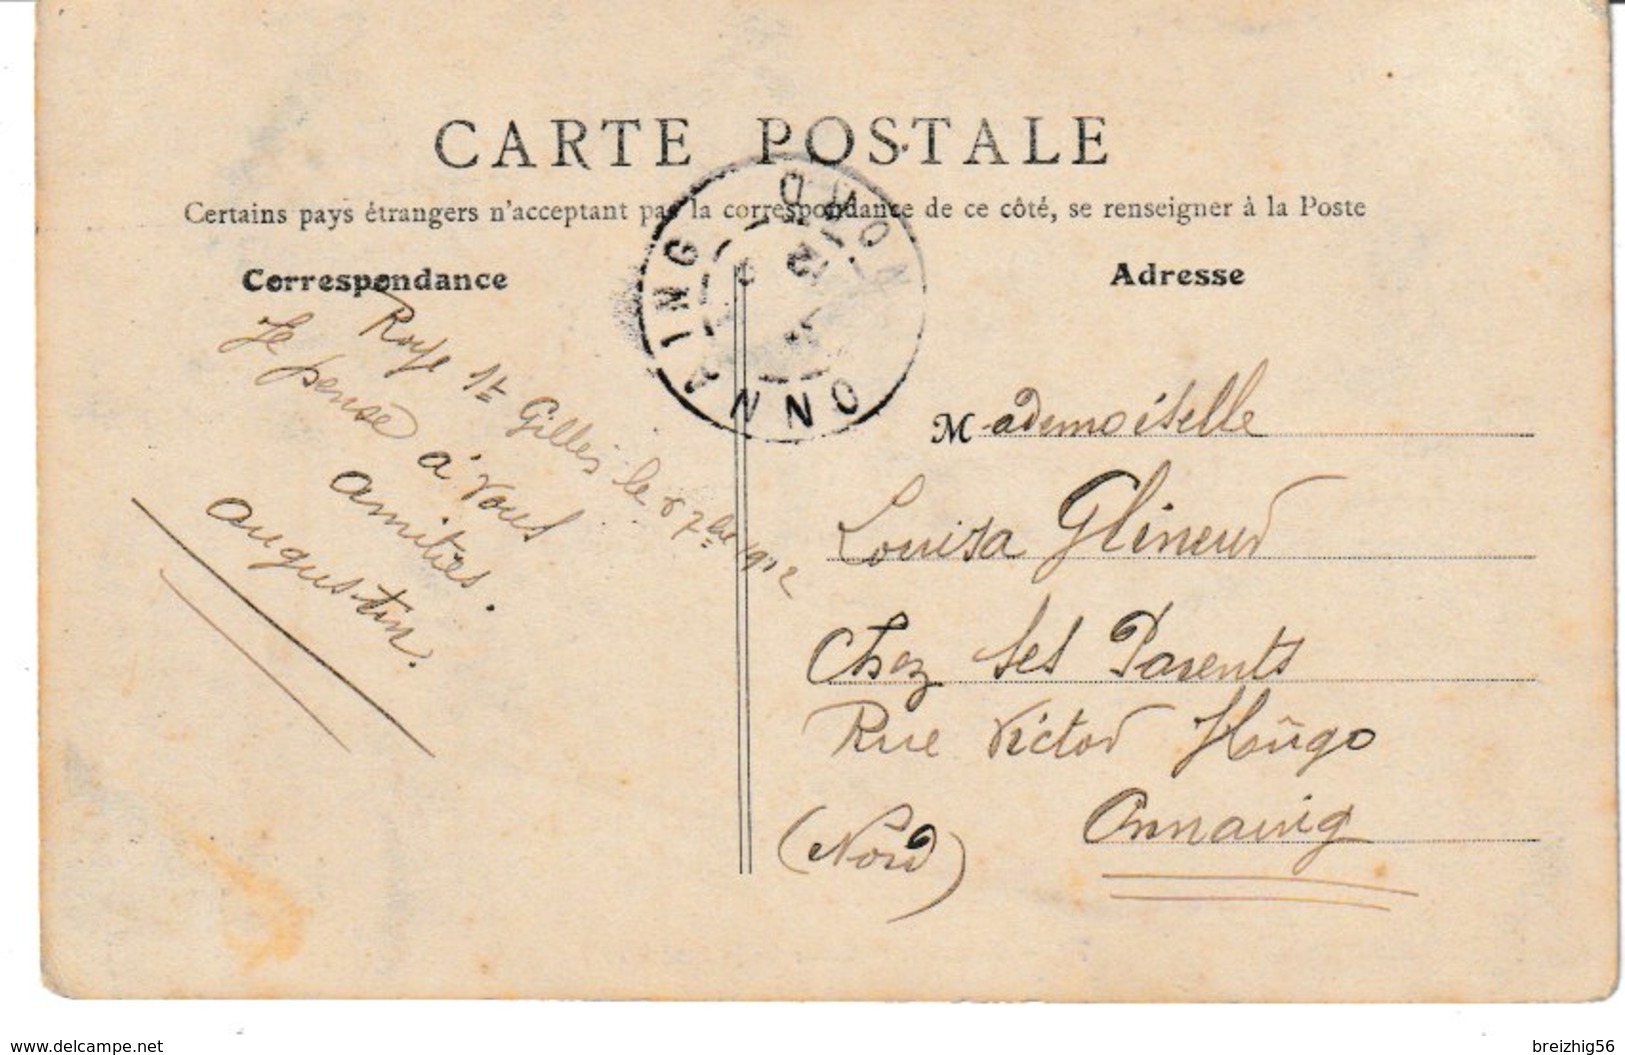 CARTE POSTALE
Certains pays étrangers n'acceptant pas la correspondance de ce côté, se renseigner à la Poste
Correspondance
Adresse
Roye St Gilles le 8 7bre 1912
Je pense à vous
amitiés.
augustin.
ONNAING
NORD
Mademoiselle
Louisa Glineur
Chez Ses Parents
Rue Victor Hugo
Onnaing
(Nord)
www.delcampe.net
breizhig56